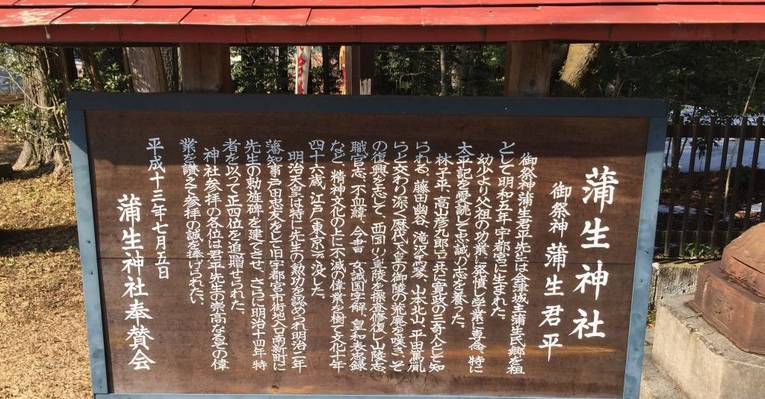 蒲生神社
御祭神 蒲生君平
御祭神蒲生君平先生は会津城主蒲生氏郷を祖
として明和五年宇都宮に生まれた。
幼少より父祖の功業に
学業に専念、特に
太平記を愛読して忠誠の志を養った。
林子平、高山彦九郎と共に寛政の三奇人として知
られる。藤田幽谷、滝沢馬琴、山本北山、平田篤胤
らと交わり深く歴代天皇の御陵の荒廃を嘆き、そ
の復興を志して、西国の皇陵を探査
山陵志、
職官志、不恤緯、今書
皇和表忠録
など、精神文化の上に不滅の偉業を樹て文化十年
四十六歳、江戸(東京)で没した。
明治天皇は特に先生の勲功を認められ明治二年
藩知事戸田忠友をして旧宇都宮市街地入口南新町に
先生の勅旌碑を建てさせ、さらに明治十四年、特
旨を以って正四位を追贈せられた。
神社参拝の各位は君平先生の崇高な
の偉
業を讃えて参拝の誠を捧げられたい。
平成十三年七月五日
蒲生神社奉賛会